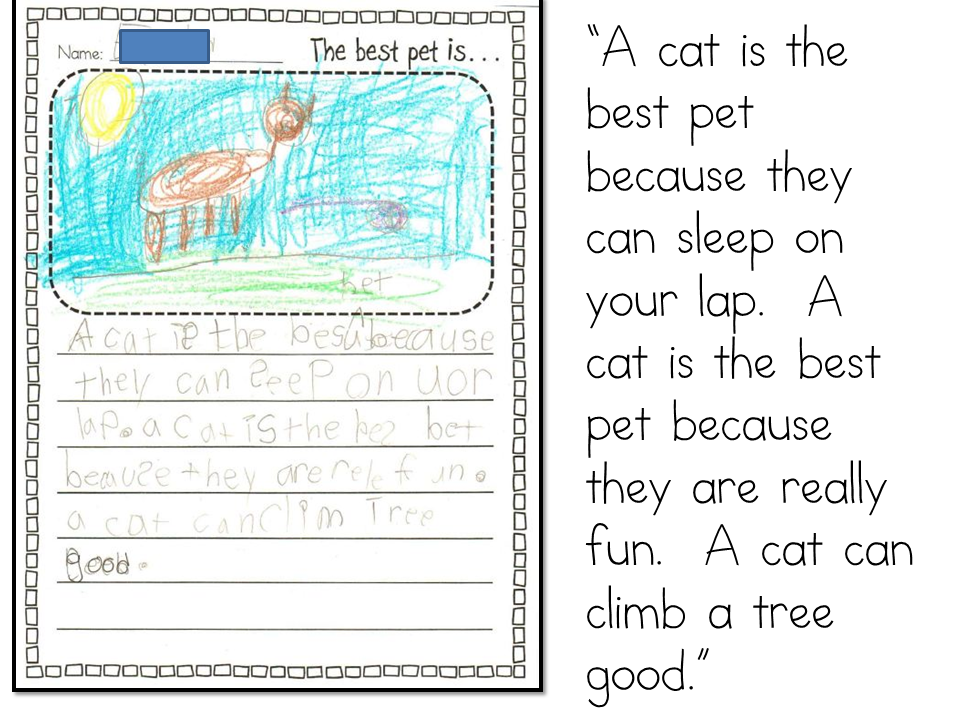 Name:
The best pet is...
bet
A cat is the best because
they can SeeP on uor
lap. a cat is the bes bet
beause they are rele fun.
a cat can clim Tree
good.
“A cat is the
best pet
because they
can sleep on
your lap. A
cat is the best
pet because
they are really
fun. A cat can
climb a tree
good.”